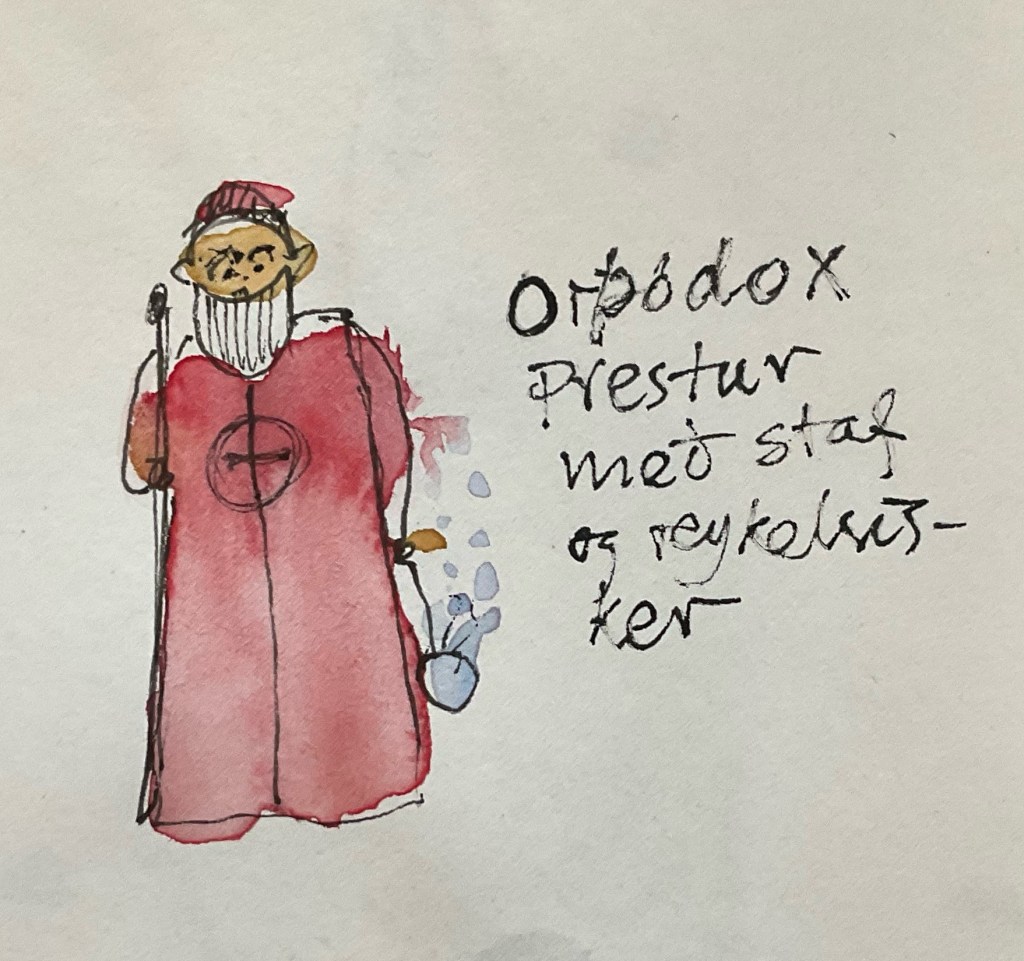 Orþódox
prestur
með staf
og reykelsis-
ker